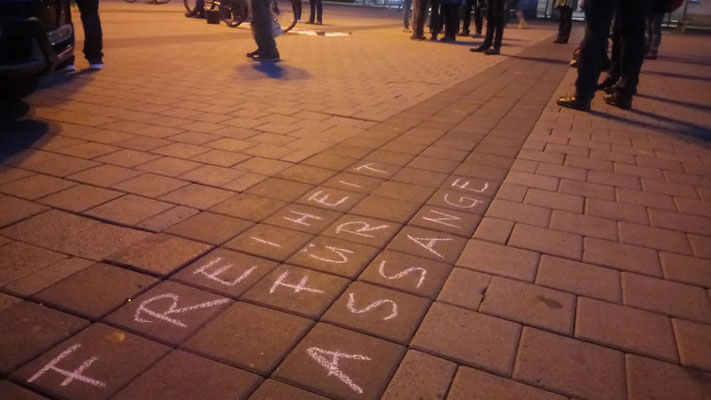 FREIHEIT
FÜR
ASSANGE